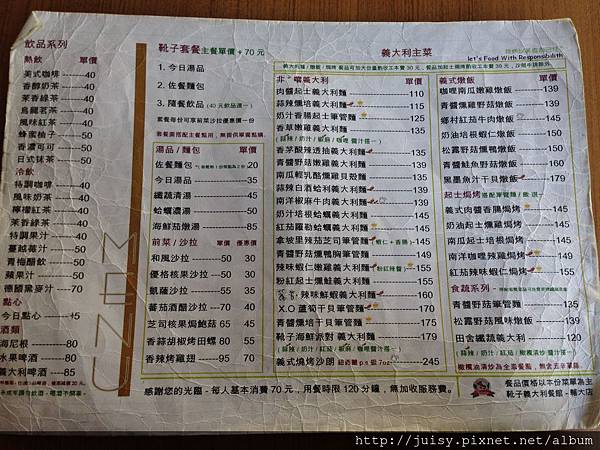 飲品系列
熱飲 單價
美式咖啡 40
香醇奶茶 40
茉香綠茶 40
烏龍茗茶 40
風味紅茶 40
蜂蜜柚子 50
香濃可可 50
日式抹茶 50
冷飲
特調咖啡 40
風味奶茶 40
檸檬紅茶 40
茉香綠茶 40
特調果汁 40
蔓越莓汁 50
青梅醋飲 50
蘋果汁 50
德國黑麥汁 50
點心
今日點心 45
酒類
海尼根 80
水果啤酒 80
義大利啤酒 85
MENU
靴子套餐 主餐單價 + 70 元
1. 今日湯品
2. 佐餐麵包
3. 隨餐飲品 (40 元飲品選一)
套餐每份可享前菜沙拉優惠價一份
湯品 / 麵包 單價
佐餐麵包 20
今日湯品 35
纖蔬清湯 45
蛤蠣濃湯 50
海鮮茄燉湯 85
前菜 / 沙拉 單價 優惠價
和風沙拉 50 30
優格核果沙拉 50 30
凱薩沙拉 55 35
蕃茄酒醋沙拉 70 50
芝司核果焗鮑菇 65 45
香蒜胡椒烤田螺 80 55
香辣烤雞翅 95 70
感謝您的光臨 - 每人基本消費 70 元，用餐時限 120 分鐘，無加收服務費。
let's Food With Responsibility
義大利主菜
肉醬起士義大利麵 110
蒜辣燻培義大利麵 115
奶汁香腸起士筆管麵 125
香草嫩雞義大利麵 135
香茅酸辣透抽義大利麵 135
青醬野菇嫩雞義大利麵 135
南瓜輕乳酪燻雞貝殼麵 135
蒜辣白酒蛤利義大利麵 135
南洋椒麻牛肉義大利麵 139
奶汁培根蛤蠣義大利麵 145
紅茄羅勒蛤蠣義大利麵 145
拿坡里辣茄芝司筆管麵 145
青醬野菇燻鴨胸筆管麵 155
辣味蝦仁嫩雞義大利麵 155
粉紅起士燻鮭義大利麵 155
辣味鮮蝦義大利麵 160
X.O 蘆筍干貝筆管麵 160
青醬燻培干貝筆管麵 175
靴子海鮮派對 義大利麵 175
義式燒烤沙朗 7oz 245
義式燉飯 單價
咖哩南瓜嫩雞燉飯 139
青醬燻雞野菇燉飯 139
鄉村紅茄牛肉燉飯 145
奶油培根蝦仁燉飯 150
松露野菇燻鴨燉飯 160
青醬鮭魚野菇燉飯 160
黑墨魚汁干貝燉飯 169
起士焗烤
義式肉醬香腸焗烤 145
奶油起士燻雞焗烤 150
南瓜起士培根焗烤 150
南洋咖哩辣雞焗烤 155
紅茄辣味蝦仁焗烤 155
食蔬系列
青醬野菇筆管麵 125
松露野菇風味燉飯 139
田舍纖蔬義大利 120
餐品價格以本份菜單為主
靴子義大利餐館 - 輔大店
http://juisy.pixnet.net/album